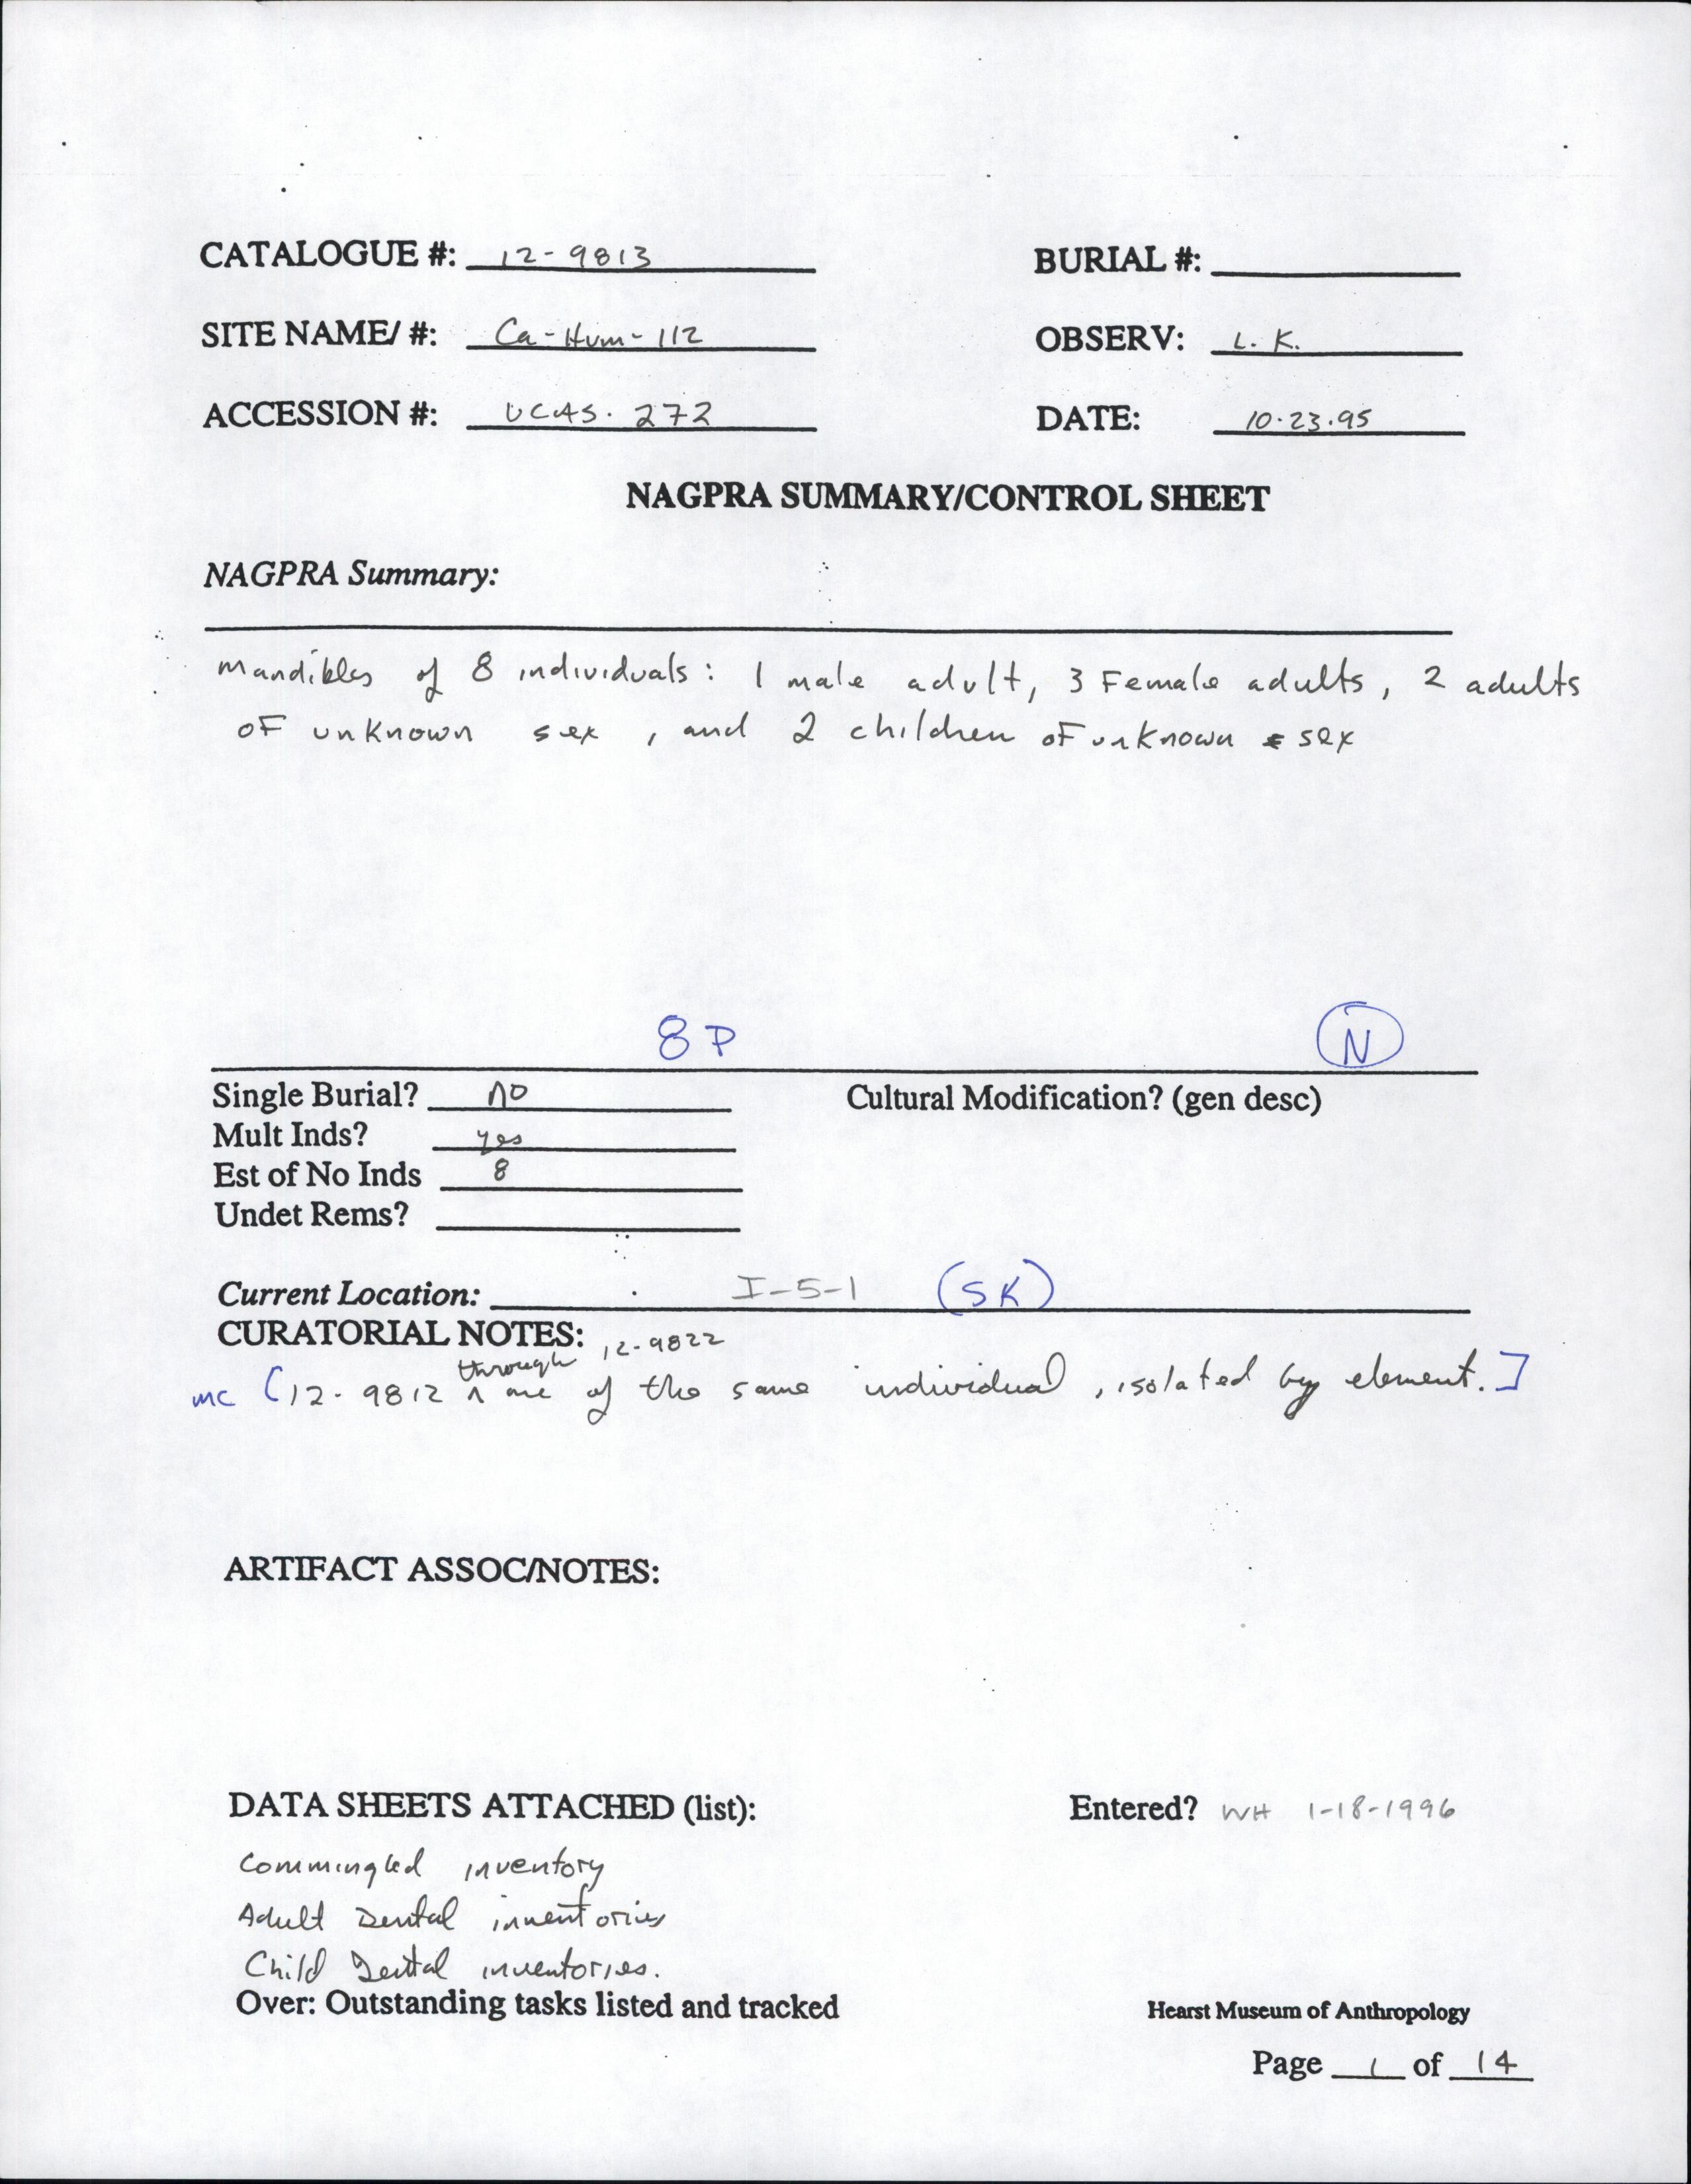 CATALOGUE #: 12-9813
BURIAL #:
SITE NAME/ #: Ca-Hum-112
OBSERV: L. K.
ACCESSION #: UCAS. 272
DATE: 10.23.95
NAGPRA SUMMARY/CONTROL SHEET
NAGPRA Summary:
Mandibles of 8 individuals: 1 male adult, 3 Female adults, 2 adults
of unknown sex, and 2 children of unknown sex
8 P
N
Single Burial? no
Cultural Modification? (gen desc)
Mult Inds? yes
Est of No Inds 8
Undet Rems?
Current Location: I-5-1 (SK)
CURATORIAL NOTES:
through 12-9822
mc [12-9812 ^ are of the same individual, isolated by element.]
ARTIFACT ASSOC/NOTES:
DATA SHEETS ATTACHED (list):
Entered? WH 1-18-1996
Commingled inventory
Adult Dental inventories
Child Dental inventories.
Over: Outstanding tasks listed and tracked
Hearst Museum of Anthropology
Page 1 of 14